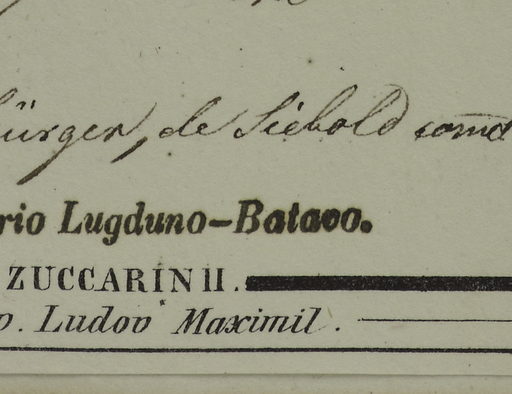 bürger, de Siebold comd
rio Lugduno-Batavo.
ZUCCARINII.
p. Ludov Maximil.